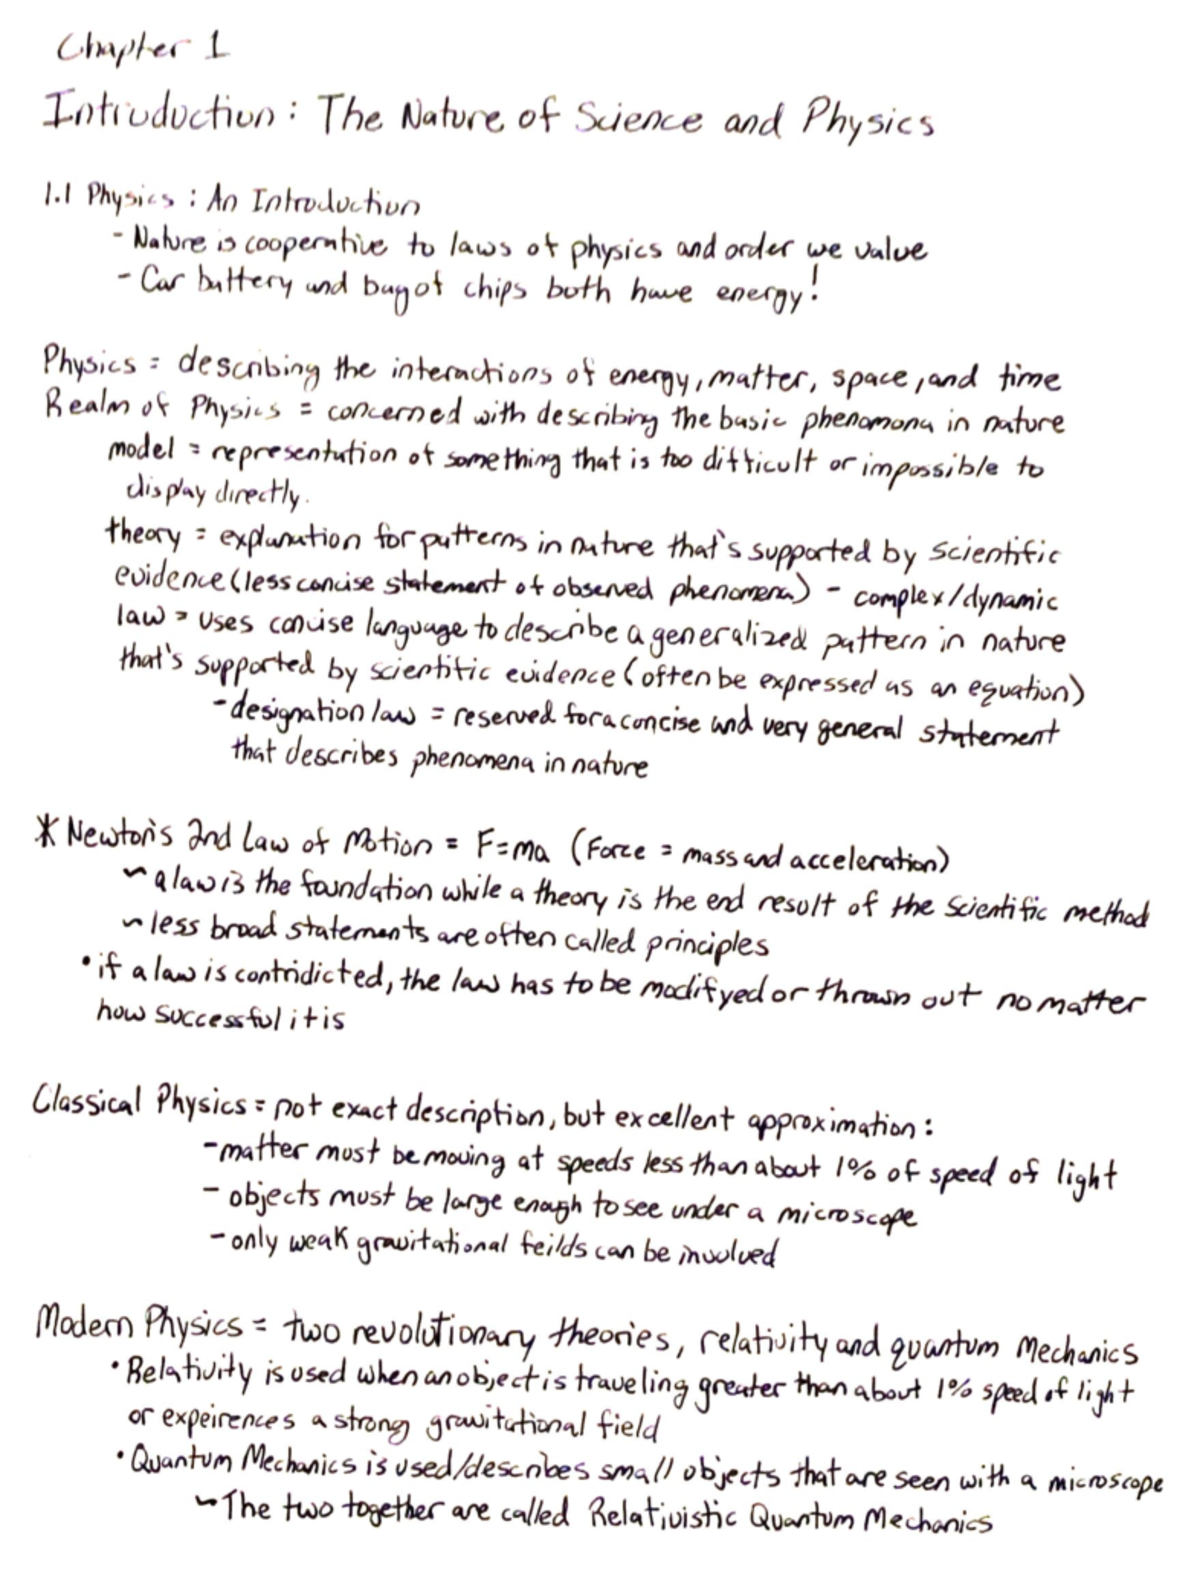 Chapter 1
Introduction: The Nature of Science and Physics
1.1 Physics: An Introduction
- Nature is cooperative to laws of physics and order we value
- Car battery and bag of chips both have energy!
Physics = describing the interactions of energy, matter, space, and time
Realm of Physics = concerned with describing the basic phenomona in nature
model = representation of something that is too difficult or impossible to
display directly.
theory = explanation for patterns in nature that's supported by scientific
evidence (less concise statement of observed phenomena) - complex/dynamic
law = uses concise language to describe a generalized pattern in nature
that's supported by scientific evidence (often be expressed as an equation)
- designation law = reserved for a concise and very general statement
that describes phenomena in nature
* Newton's 2nd Law of Motion = F=ma (Force = mass and acceleration)
~ a law is the foundation while a theory is the end result of the scientific method
~ less broad statements are often called principles
• if a law is contridicted, the law has to be modifyed or thrown out no matter
how successful it is
Classical Physics = not exact description, but excellent approximation:
- matter must be moving at speeds less than about 1% of speed of light
- objects must be large enough to see under a microscope
- only weak gravitational feilds can be involved
Modern Physics = two revolutionary theories, relativity and quantum Mechanics
• Relativity is used when an object is traveling greater than about 1% speed of light
or expeirences a strong gravitational field
• Quantum Mechanics is used/describes small objects that are seen with a microscope
~ The two together are called Relativistic Quantum Mechanics